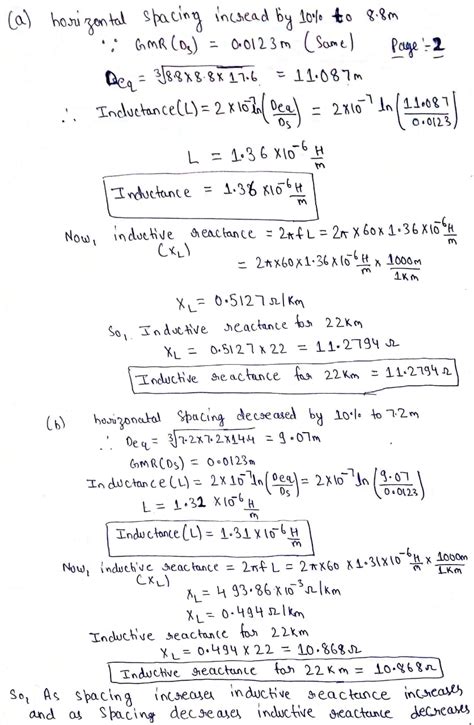 (a) horizontal spacing incread by 10% to 8.8m
∵ GMR(Ds) = 0.0123m (Same) Page :- 2
Deq = ∛8.8×8.8×17.6 = 11.087m
∴ Inductance(L) = 2×10⁻⁷ln(Deq/Ds) = 2×10⁻⁷ ln(11.087/0.0123)
L = 1.36 ×10⁻⁶ H/m
Inductance = 1.36 ×10⁻⁶ H/m
Now, inductive reactance = 2πfL = 2π×60×1.36×10⁻⁶ H/m
(XL)
= 2π×60×1.36×10⁻⁶ H/m × 1000m/1Km
XL = 0.5127 Ω/Km
So, Inductive reactance for 22Km
XL = 0.5127×22 = 11.2794 Ω
Inductive reactance for 22Km = 11.2794 Ω
(b) horizonatal spacing decreased by 10% to 7.2m
∴ Deq = ∛7.2×7.2×14.4 = 9.07m
GMR(Ds) = 0.0123m
Inductance(L) = 2×10⁻⁷ln(Deq/Ds) = 2×10⁻⁷ ln(9.07/0.0123)
L = 1.32 ×10⁻⁶ H/m
Inductance(L) = 1.31×10⁻⁶ H/m
Now, inductive reactance = 2πfL = 2π×60 ×1.31×10⁻⁶ H/m × 1000m/1Km
(XL)
XL = 493.86×10⁻³ Ω/Km
XL = 0.494 Ω/Km
Inductive reactance for 22Km
XL = 0.494 × 22 = 10.868Ω
Inductive reactance for 22Km = 10.868Ω
So, As spacing increases inductive reactance increases
and as spacing decreases inductive reactance decreases